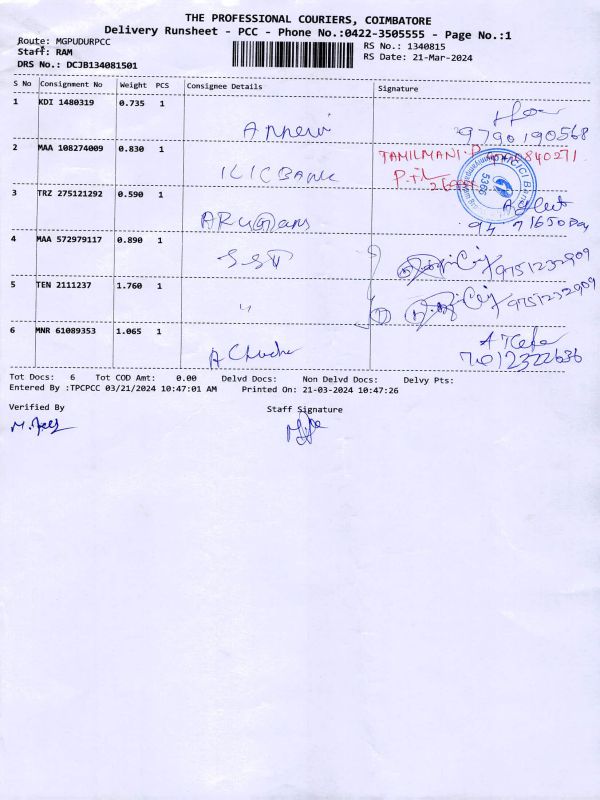 THE PROFESSIONAL COURIERS, COIMBATORE
Delivery Runsheet - PCC - Phone No.:0422-3505555 - Page No.:1
Route: MGPUDURPCC
RS No.: 1340815
Staff: RAM
RS Date: 21-Mar-2024
DRS No.: DCJB134081501
S No Consignment No Weight PCS Consignee Details Signature
1 KDI 1480319 0.735 1
9790190568
2 MAA 108274009 0.830 1 ICICBANK TAMILMANI.P
ICICI Ban
5366
3 TRZ 275121292 0.590 1
4 MAA 572979117 0.890 1 SST 9751232909
5 TEN 2111237 1.760 1 " 9751232909
6 MNR 61089353 1.065 1
7012322636
Tot Docs: 6 Tot COD Amt: 0.00 Delvd Docs: Non Delvd Docs: Delvy Pts:
Entered By :TPCPCC 03/21/2024 10:47:01 AM Printed On: 21-03-2024 10:47:26
Verified By Staff Signature